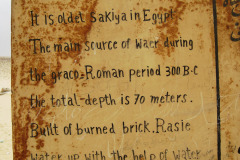 It is oldet Sakiya in Egypt.
The main source of waer during
the graco-Roman period 300 B.C
the total-depth is 70 meters.
Built of burned brick. Rasie
water up with the help of water